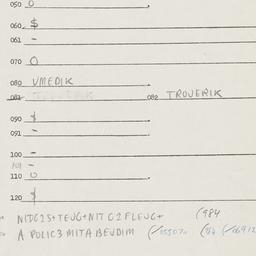 050 O
060 $
061 -
070 O
080 VMEDIK
081 082 TROVERIK
090 $
091 -
100 -
101 -
110 O
120 $
NIDG2S+TEUG+NITG2FLEUG+ (984
A POLIC3 MITA BEUDIM